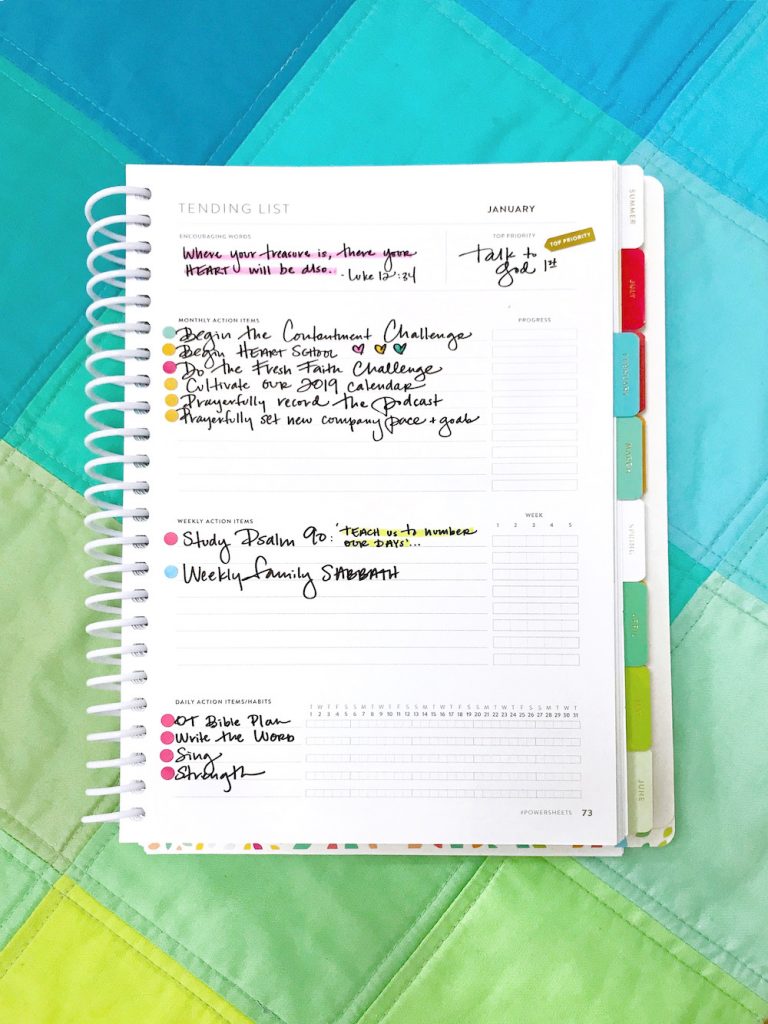 TENDING LIST JANUARY
ENCOURAGING WORDS TOP PRIORITY
Where your treasure is, there your
HEART will be also. - Luke 12:34
TOP PRIORITY
Talk to
God 1st
MONTHLY ACTION ITEMS PROGRESS
Begin the Contentment Challenge
Begin HEART SCHOOL
Do the Fresh Faith Challenge
Cultivate our 2019 calendar
Prayerfully record the podcast
Prayerfully set new company pace + goals
WEEKLY ACTION ITEMS WEEK
1 2 3 4 5
Study Psalm 90: 'TEACH us to number
OUR DAYS'...
Weekly family SABBATH
DAILY ACTION ITEMS/HABITS
T W T F S S M T W T F S S M T W T F S S M T W T F S S M T W T
1 2 3 4 5 6 7 8 9 10 11 12 13 14 15 16 17 18 19 20 21 22 23 24 25 26 27 28 29 30 31
OT Bible Plan
Write the Word
Sing
Strength
#POWERSHEETS 73
SUMMER
JULY
MARCH
SPRING
APRIL
MAY
JUNE